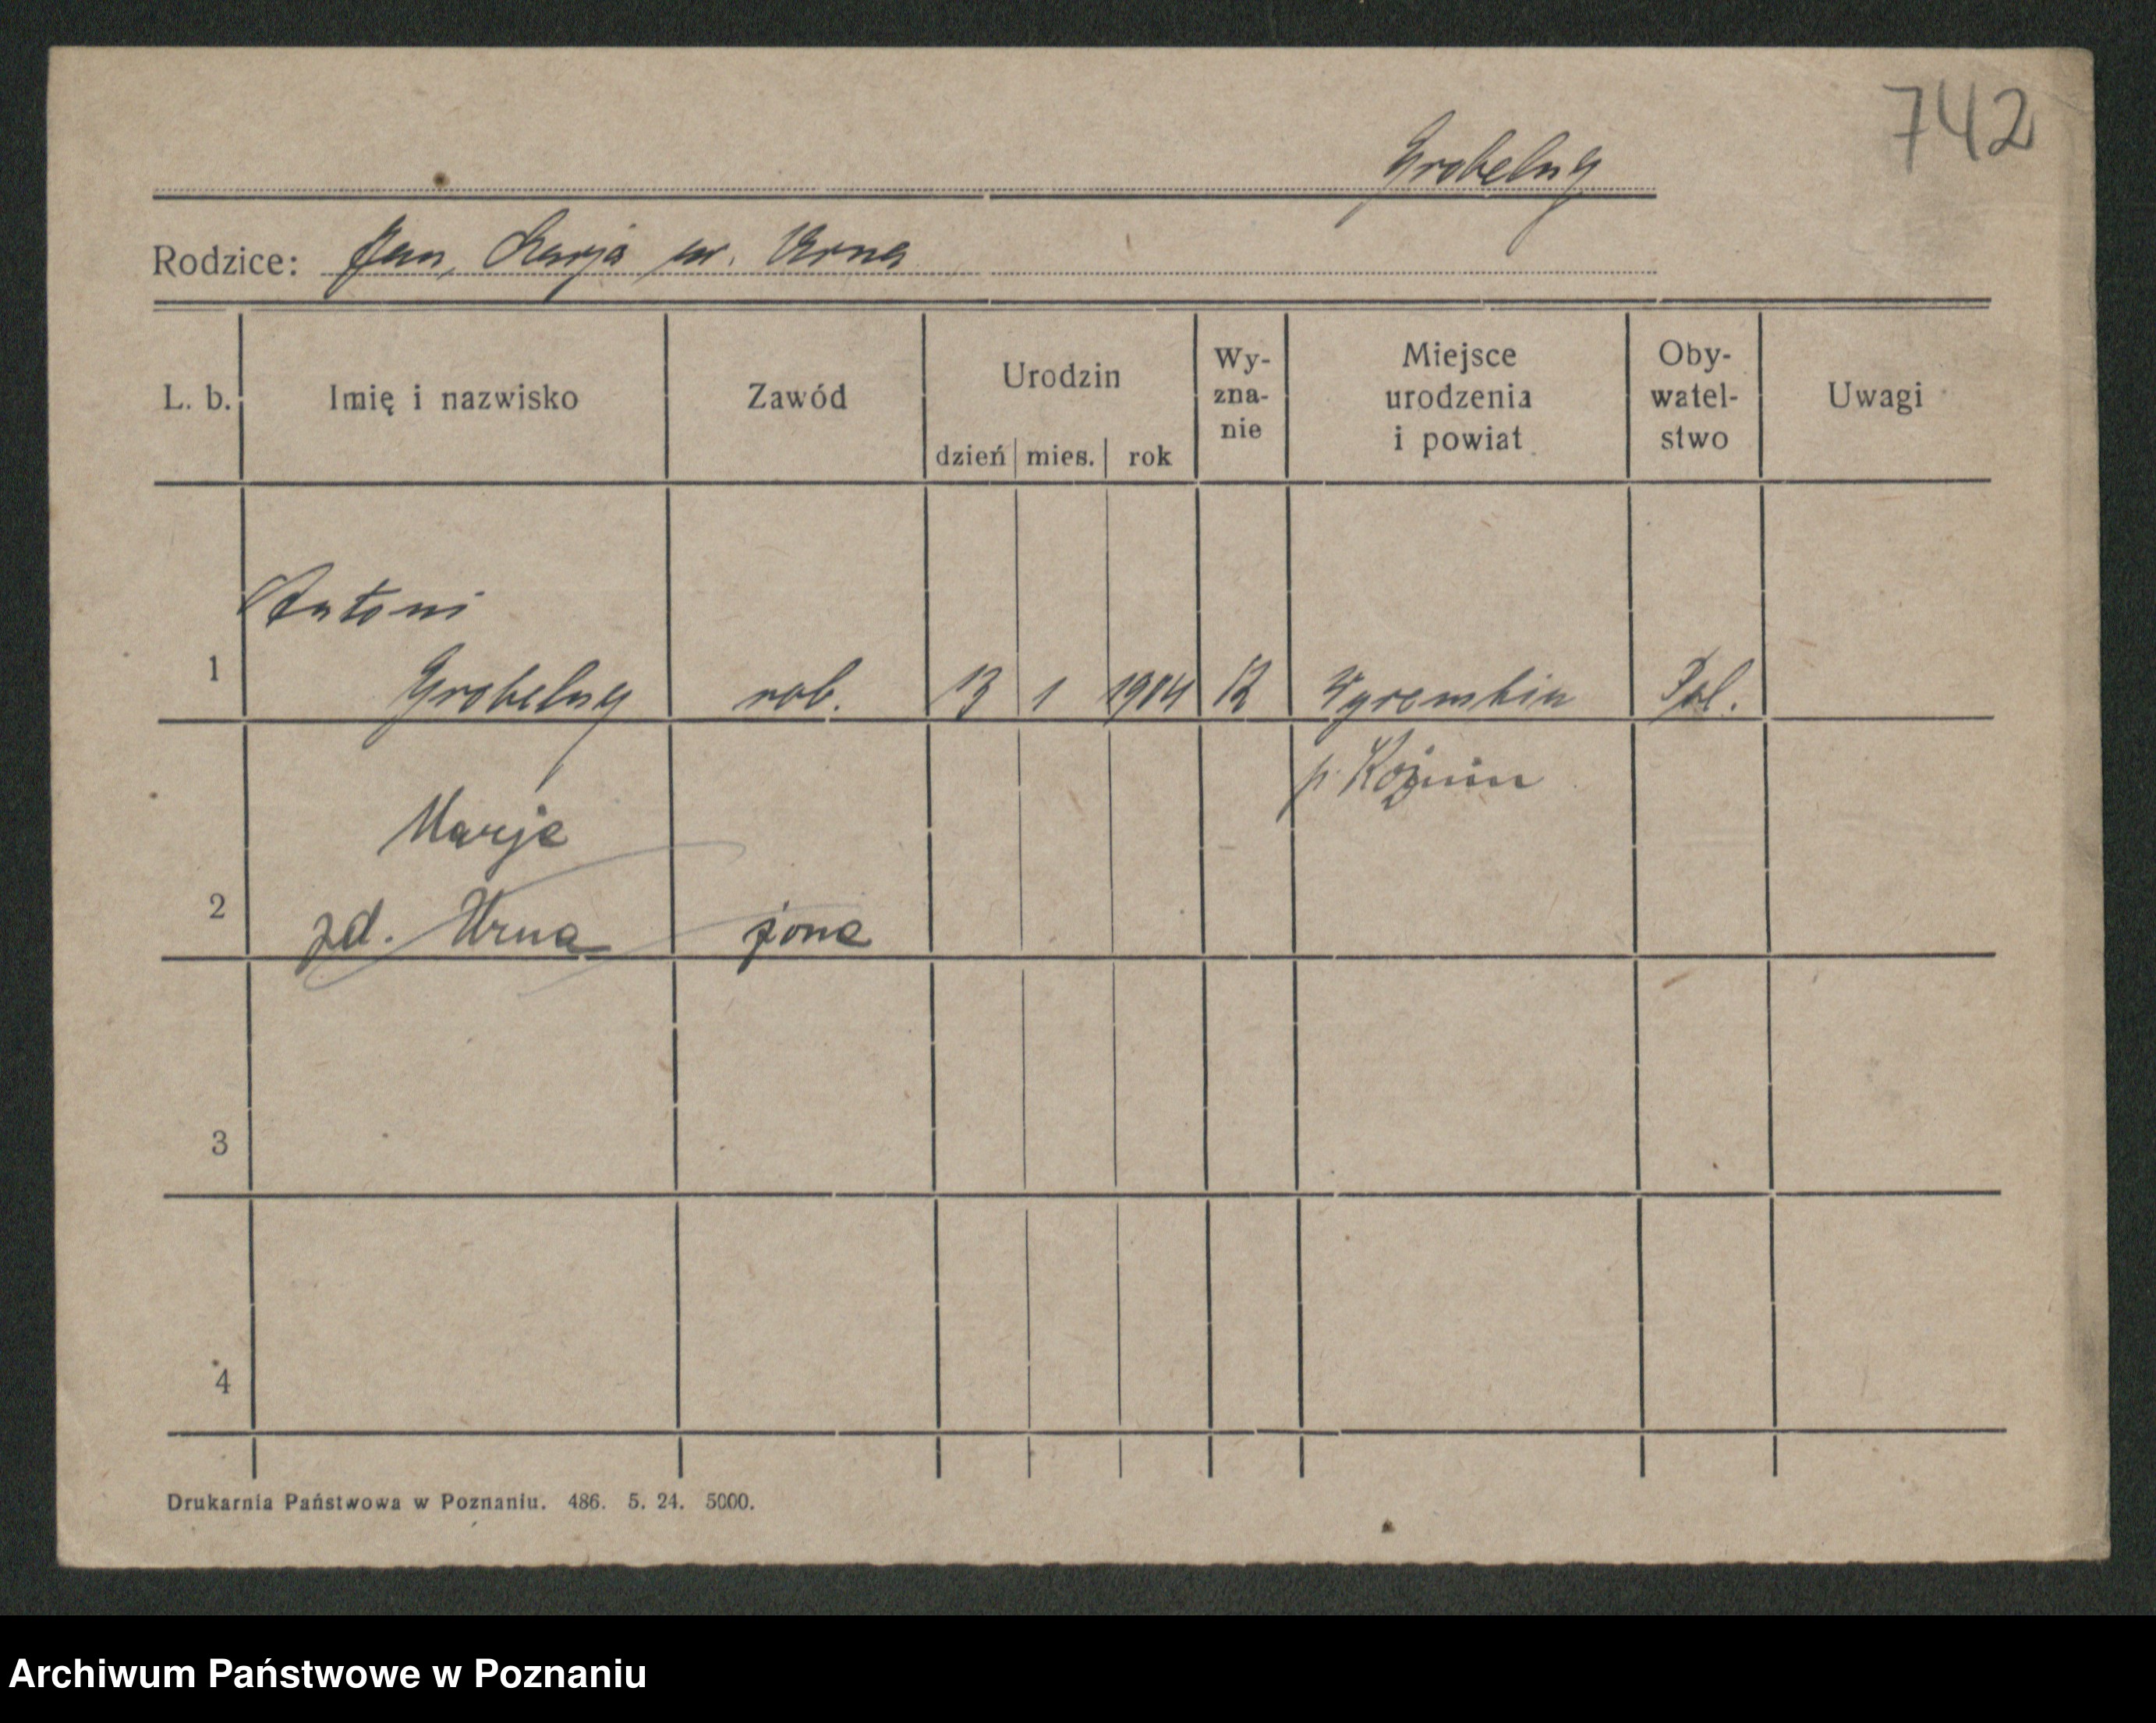 742
Grobelny
Rodzice: Jan, Marja ur. Urna
L. b. Imię i nazwisko Zawód Urodzin dzień mies. rok Wy-zna-nie Miejsce urodzenia i powiat Oby-watel-stwo Uwagi
Antoni
1 Grobelny rob. 13 1 1904 K Wyrembin Pol.
p. Koźmin
Marja
2 zd. Urna żona
3
4
Drukarnia Państwowa w Poznaniu. 486. 5. 24. 5000.
Archiwum Państwowe w Poznaniu